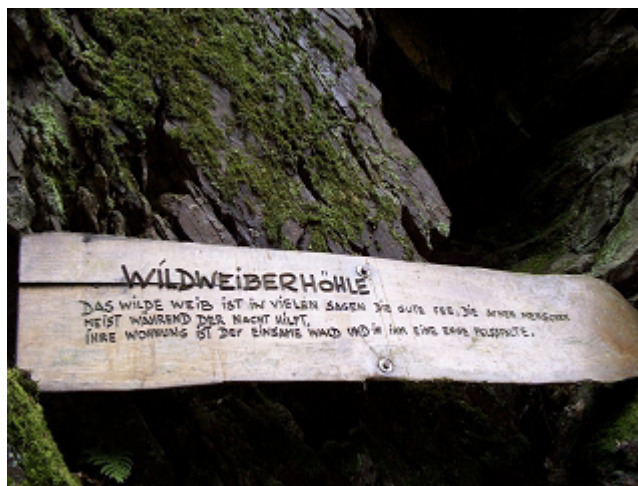 WILDWEIBERHÖHLE
DAS WILDE WEIB IST IN VIELEN SAGEN DIE GUTE FEE, DIE ARMEN MENSCHEN
MEIST WÄHREND DER NACHT HILFT.
IHRE WOHNUNG IST DER EINSAME WALD UND IN IHM EINE FELSSPALTE.